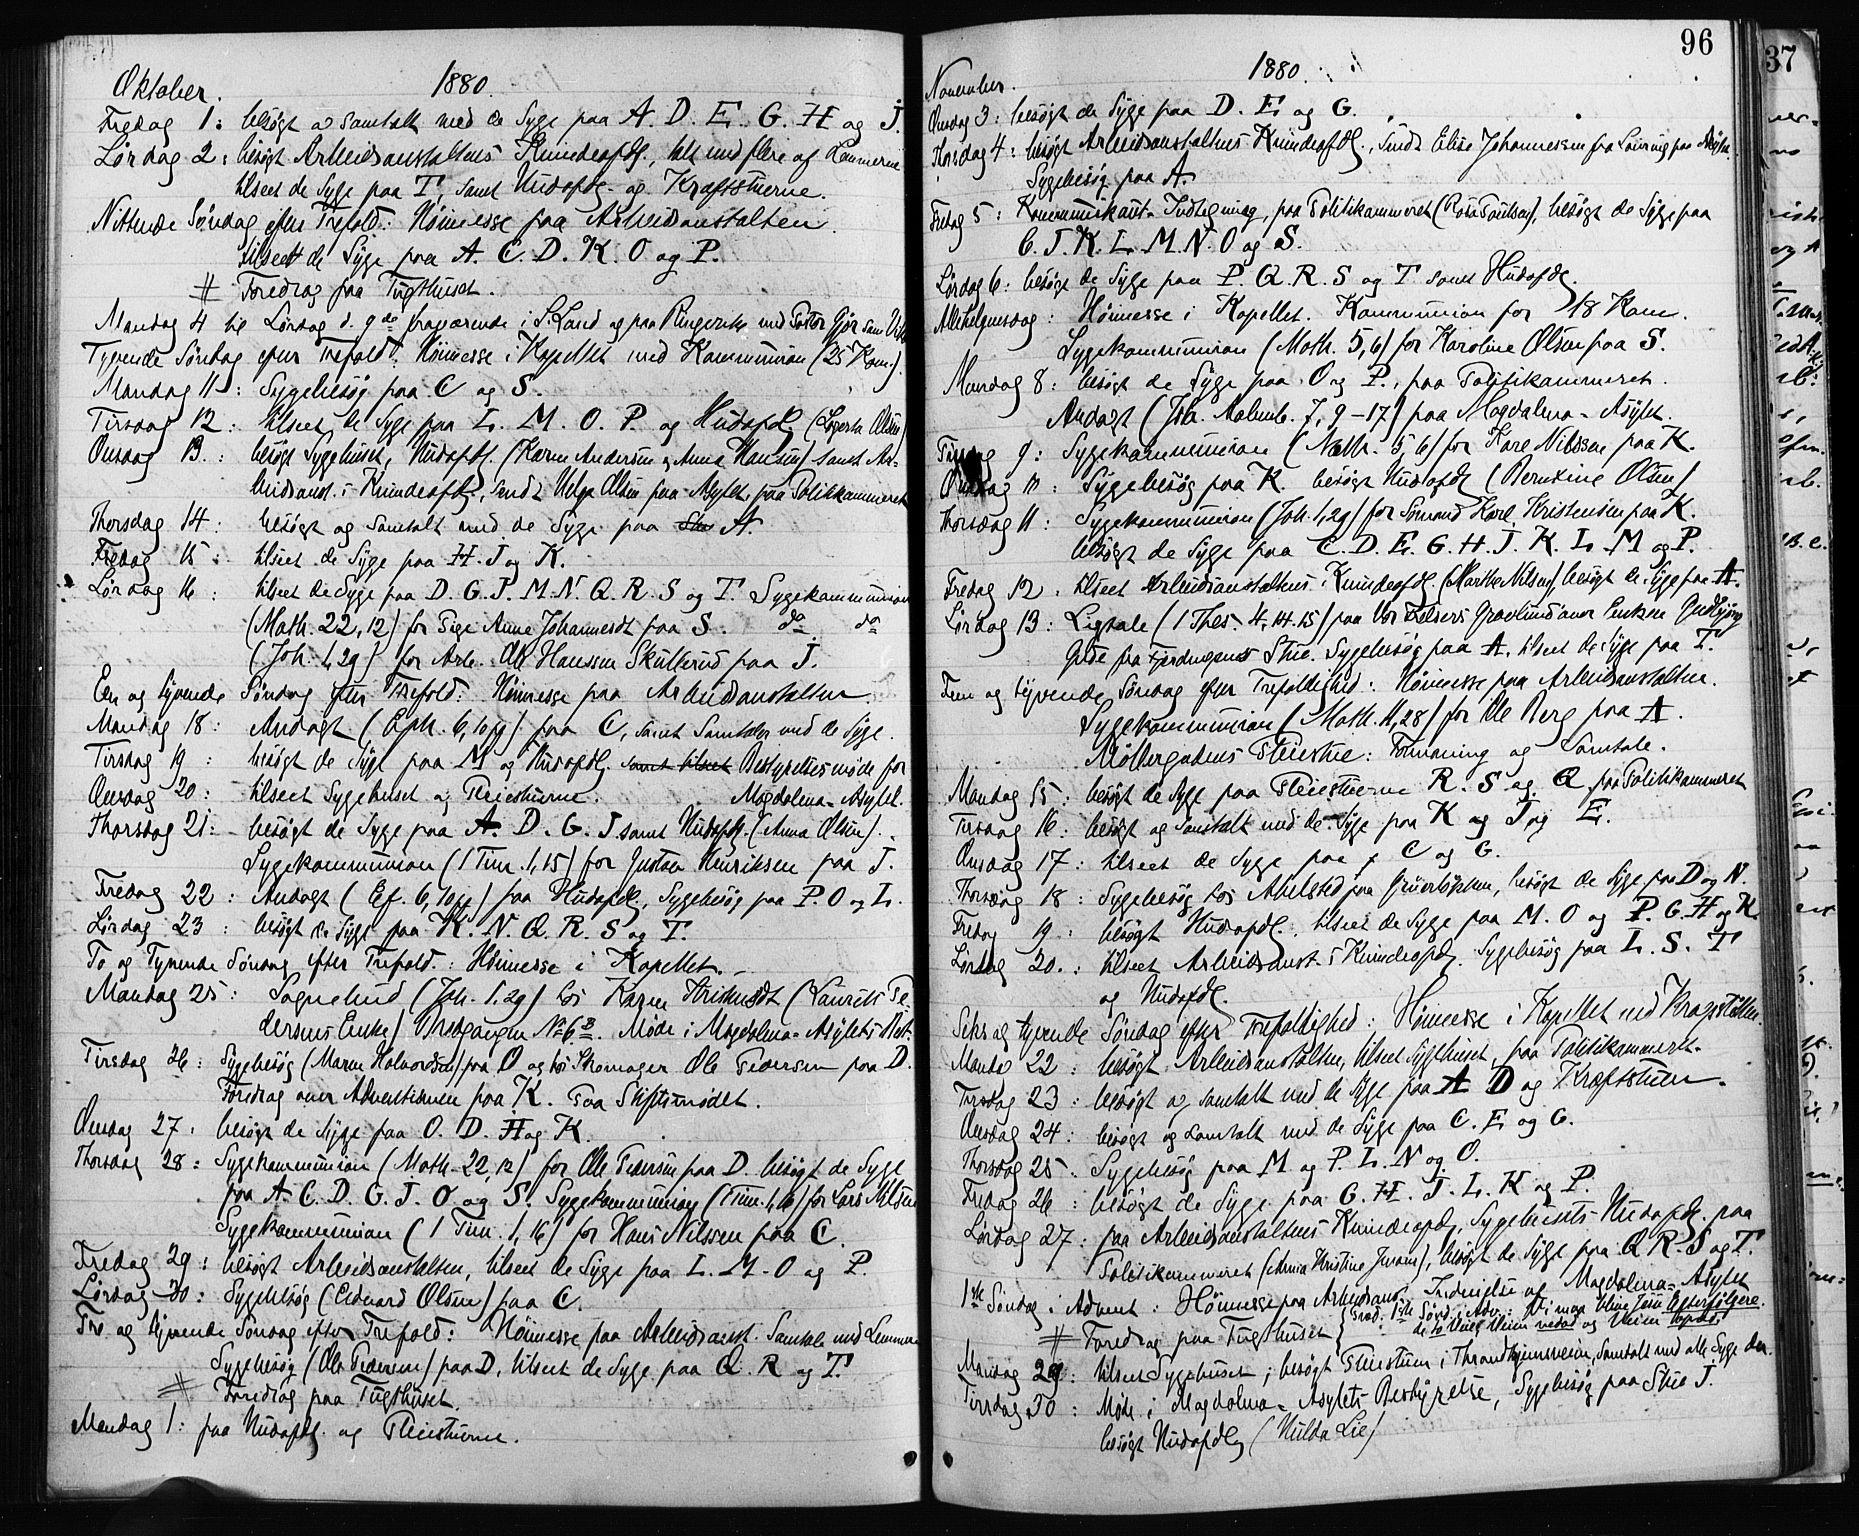 Oktober. 1880.
Fredag 1: besøgt og samtalt med de Syge paa A. D. E. G. H og J.
Lørdag 2: besøgt Arbeidsanstaltens Kvindeafdl., talt med flere af Lemmerne
tilseet de Syge paa T, samt Hudafdl. og Kræftstuerne.
Nittende Søndag efter Trefold: Høimesse paa Arbeidsanstalten.
tilseet de Syge paa A. C. D. K. O og P.
# Foredrag paa Tugthuset.
Mandag 4 til Lørdag d. 9de fraværende i S. Land og paa Ringerike med Pastor
Tyvende Søndag efter Trefold: Høimesse i Kapellet med Kommunion (25 Kom.)
Mandag 11: Sygebesøg paa C og S.
Tirsdag 12: tilseet de Syge paa L. M. O. P. og Hudafdl. (Olsen)
Onsdag 13.: besøgt Sygehuset, Hudafdl. (Karen Andersen og Anna Hansen) samt Ar-
beidsanst.s Kvindeafdl., sendt Helga Olsen paa Asylet, paa Politikammeret
Thorsdag 14: besøgt og samtalt med de Syge paa A.
Fredag 15: tilseet de Syge paa H. J og K.
Lørdag 16: tilseet de Syge paa D. G. J. M. N. Q. R. S og T. Sygekommunion
(Math. 22,12) for Pige Anne Johannesdt paa S. do do
(Joh. 1,29) for Arb. Ole Hanssen Skullerud paa J.
Een og tyvende Søndag efter Trefold: Høimesse paa Arbeidsanstalten
Mandag 18: Andagt (Eph. 6,10ff) paa C, samt Samtaler med de Syge.
Tirsdag 19: besøgt de Syge paa M og Hudafdl. samt tilseet Bestyrelsesmøde for
Onsdag 20: tilseet Sygehuset og Pleiestuerne. Magdalena-Asylet.
Thorsdag 21: besøgt de Syge paa A. D. G. J samt Hudafdl. (Anna Olsen).
Sygekommunion (1 Tim. 1,15) for Gustav Henriksen paa J.
Fredag 22: Andagt (Ef. 6,10ff) paa Hudafdl., Sygebesøg paa P. O og L.
Lørdag 23: besøgt de Syge paa K. N. Q. R. S og T.
To og Tyvende Søndag efter Trefold.: Høimesse i Kapellet.
Mandag 25: Sognebud (Joh. 1,29) hos Karen Kristensdt (Laurits Pe-
dersens Enke) Bredgangen No 6 B. Møde i Magdalena-Asylets Best.
Tirsdag 26: Sygebesøg (Maren Halvorsdatter) paa O og hos Skomager Ole Pedersen paa D.
Foredrag over Adventismen paa K. Paa Stiftsmødet.
Onsdag 27: besøgt de Syge paa O. D. H og K.
Thorsdag 28: Sygekommunion (Math. 22,12) for Ole Pedersen paa D. besøgt de Syge
paa A. C. D. G. J. O og S. Sygekommunion (1 Tim. 1,16) for Lars Nilsen
Sygekommunion (1 Tim. 1,16) for Hans Nilssen paa C.
Fredag 29: besøgt Arbeidsanstalten, tilseet de Syge paa L. M. O og P.
Lørdag 30: Sygebesøg (Edvard Olsen) paa C.
Tre og tyvende Søndag efter Trefold: Høimesse paa Arbeidsanst. Samtale med Lemmer
Sygebesøg (Ole Pedersen) paa D, tilseet de Syge paa Q. R og T.
# Foredrag paa Tugthuset.
Mandag 1: paa Hudafdl. og Pleiestuerne.
96
November. 1880.
Onsdag 3: besøgt de Syge paa D. E og G.
Thorsdag 4: besøgt Arbeidsanstaltens Kvindeafdl., sendt Elise Johannessen fra paa Asylet.
Sygebesøg paa A.
Fredag 5: Kommunikant-Indtegning, paa Politikammeret (Poulsen), besøgt de Syge paa
C. J. K. L. M. N. O og S.
Lørdag 6: besøgt de Syge paa P. Q. R. S og T samt Hudafdl.
Allehelgensdag: Høimesse i Kapellet. Kommunion for 18 Kom.
Sygekommunion (Math. 5,6) for Karoline Olsen paa S.
Mandag 8: besøgt de Syge paa O og P., paa Politikammeret.
Andagt (Joh. Aabenb. 7, 9-17) paa Magdalena-Asylet.
Tirsdag 9: Sygekommunion (Math. 5,6) for Kare Nilssen paa K.
Onsdag 10: Sygebesøg paa K. besøgt Hudafdl. (Berntine Olsen)
Thorsdag 11: Sygekommunion (Joh. 1,29) for Sømand Karl Kristensen paa K.
besøgt de Syge paa C. D. E. G. H. J. K. L. M og P.
Fredag 12: tilseet Arbeidsanstaltens Kvindeafdl. (Marthe Nilsen) besøgt de Syge paa A.
Lørdag 13: Ligtale (1 Thes. 4,14.15) paa Vor Frelsers Gravlund over Enken Gudbjørg
Gode fra Stue. Sygebesøg paa A, tilseet de Syge paa T.
Fem og tyvende Søndag efter Trefoldighed: Høimesse paa Arbeidsanstalten.
Sygekommunion (Math. 11,28) for Ole Berg paa A.
Møllergadens Pleiestue: Formaning og Samtale.
Mandag 15: besøgt de Syge paa Pleiestuerne R. S og Q, paa Politikammeret
Tirsdag 16: besøgt og samtalt med de Syge paa K og J og E.
Onsdag 17: tilseet de Syge paa C og G.
Thorsdag 18: Sygebesøg hos Abelsted paa Grünerløkken, besøgt de Syge paa D og N.
Fredag 19: besøgt Hudafdl., tilseet de Syge paa M. O og P. G. H og K.
Lørdag 20.: tilseet Arbeidsanst.s Kvindeafdl. Sygebesøg paa L. S. T
og Hudafdl.
Seks og tyvende Søndag efter Trefoldighed: Høimesse i Kapellet med
Manda 22: besøgt Arbeidsanstalten, tilseet Sygehuset, paa Politikammeret.
Tirsdag 23: besøgt og samtalt med de Syge paa A D og Kræftstuen.
Onsdag 24: besøgt og samtalt med de Syge paa C. E og G.
Thorsdag 25: Sygebesøg paa M og P. L. N og O.
Fredag 26: besøgt de Syge paa G. H. J. L. K og P.
Lørdag 27: paa Arbeidsanstaltens Kvindeafdl., Sygehusets Hudafdl. paa
Politikammeret (Anna Kristine), besøgt de Syge paa Q R. S og T.
1ste Søndag i Advent: Høimesse paa Arbeidsans. Indvielse af Magdalena-Asylet
# Foredrag paa Tugthuset 1ste Sønd. i Adv.: Vi maa blive Jesu Efterfølgere.
Mandag 29: tilseet Sygehuset; besøgt Pleiestuen i Throndhjemsveien, samtalt med alle Syge der.
Tirsdag 30: Møde i Magdalena-Asylets Bestyrelse, Sygebesøg paa Stue J.
besøgt Hudafdl. (Hulda Lie)
37